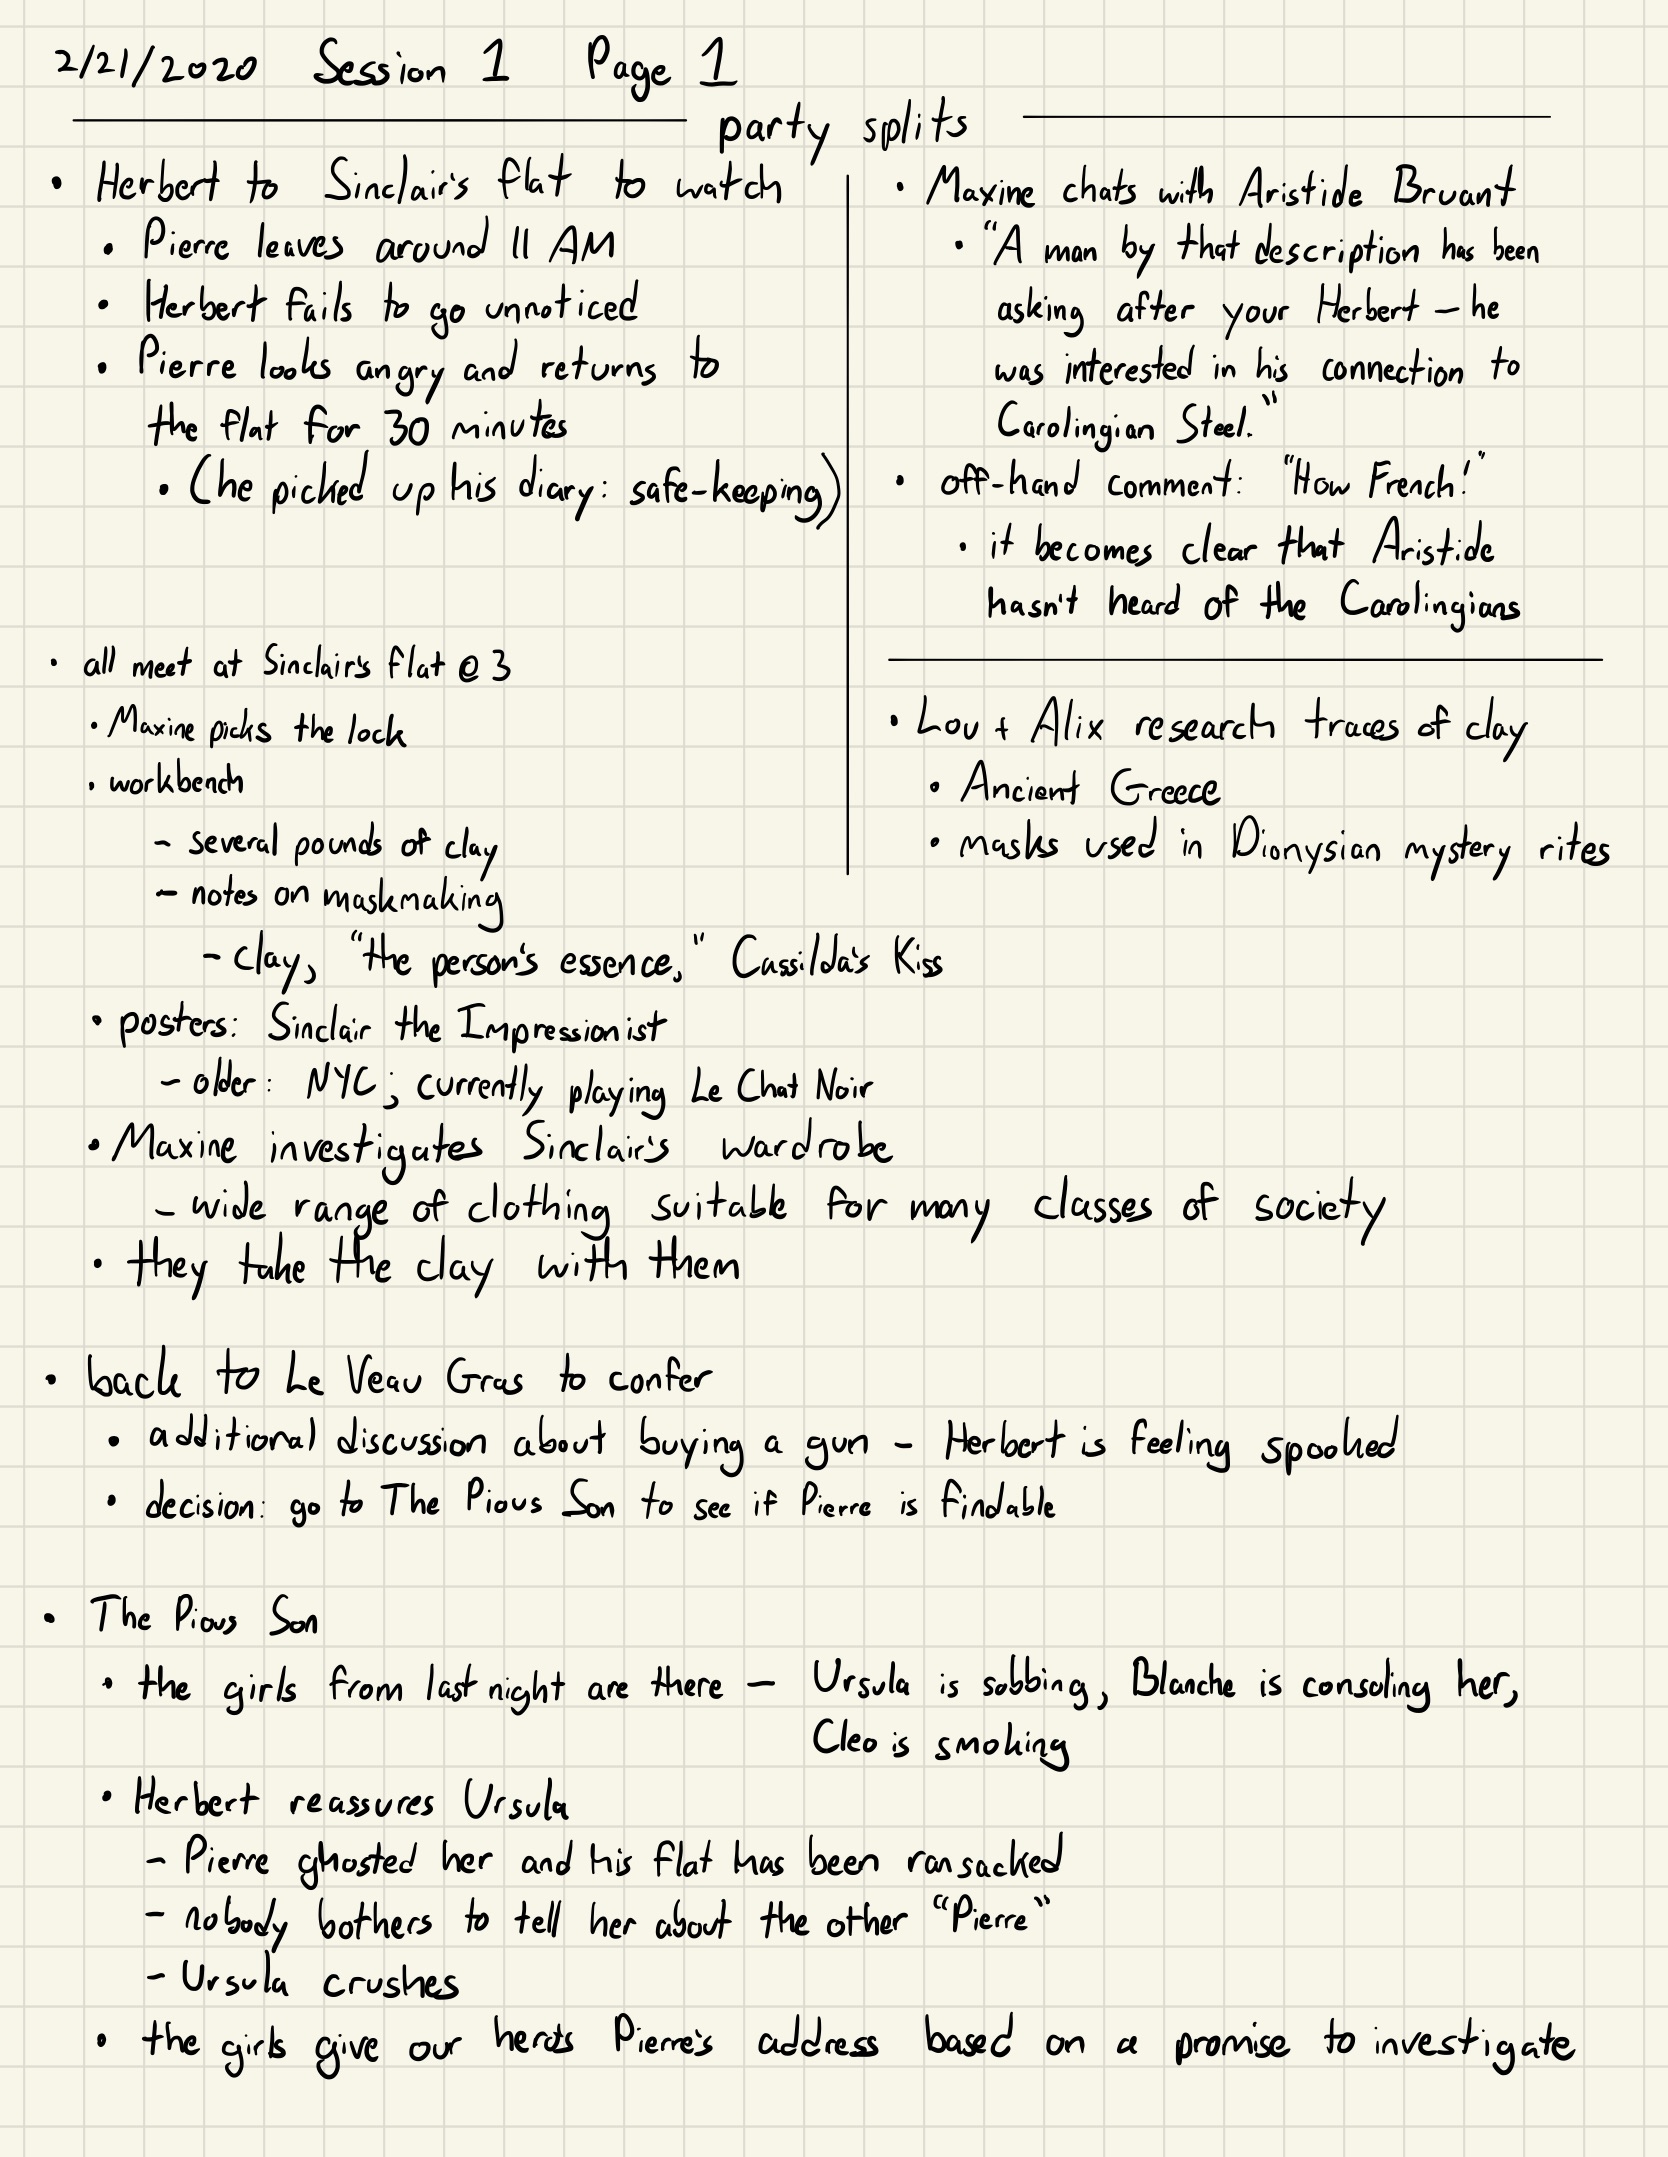 2/21/2020 Session 1 Page 1
party splits
• Herbert to Sinclair's flat to watch
• Pierre leaves around 11 AM
• Herbert fails to go unnoticed
• Pierre looks angry and returns to
the flat for 30 minutes
• (he picked up his diary: safe-keeping)
• Maxine chats with Aristide Bruant
• "A man by that description has been
asking after your Herbert – he
was interested in his connection to
Carolingian Steel."
• off-hand comment: "How French!"
• it becomes clear that Aristide
hasn't heard of the Carolingians
• Lou + Alix research traces of clay
• Ancient Greece
• masks used in Dionysian mystery rites
• all meet at Sinclair's flat @ 3
• Maxine picks the lock
• workbench
- several pounds of clay
- notes on maskmaking
- clay, "the person's essence," Cassilda's Kiss
• posters: Sinclair the Impressionist
- older: NYC; currently playing Le Chat Noir
• Maxine investigates Sinclair's wardrobe
- wide range of clothing suitable for many classes of society
• they take the clay with them
• back to Le Veau Gras to confer
• additional discussion about buying a gun - Herbert is feeling spooked
• decision: go to The Pious Son to see if Pierre is findable
• The Pious Son
• the girls from last night are there – Ursula is sobbing, Blanche is consoling her,
Cleo is smoking
• Herbert reassures Ursula
- Pierre ghosted her and his flat has been ransacked
- nobody bothers to tell her about the other "Pierre"
- Ursula crushes
• the girls give our heroes Pierre's address based on a promise to investigate